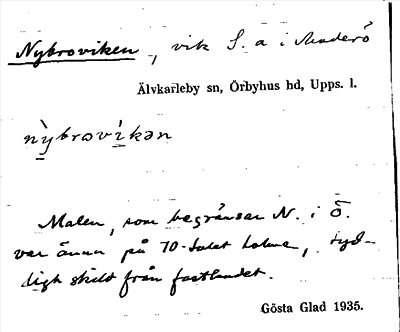 Nybroviken, vik S. a i Anderö
Älvkarleby sn, Örbyhus hd, Upps. l.
nỳbrovíkən
Malen, som begränsar N. i Ö.
var ännu på 70-talet holme, tyd-
ligt skild från fastlandet.
Gösta Glad 1935.